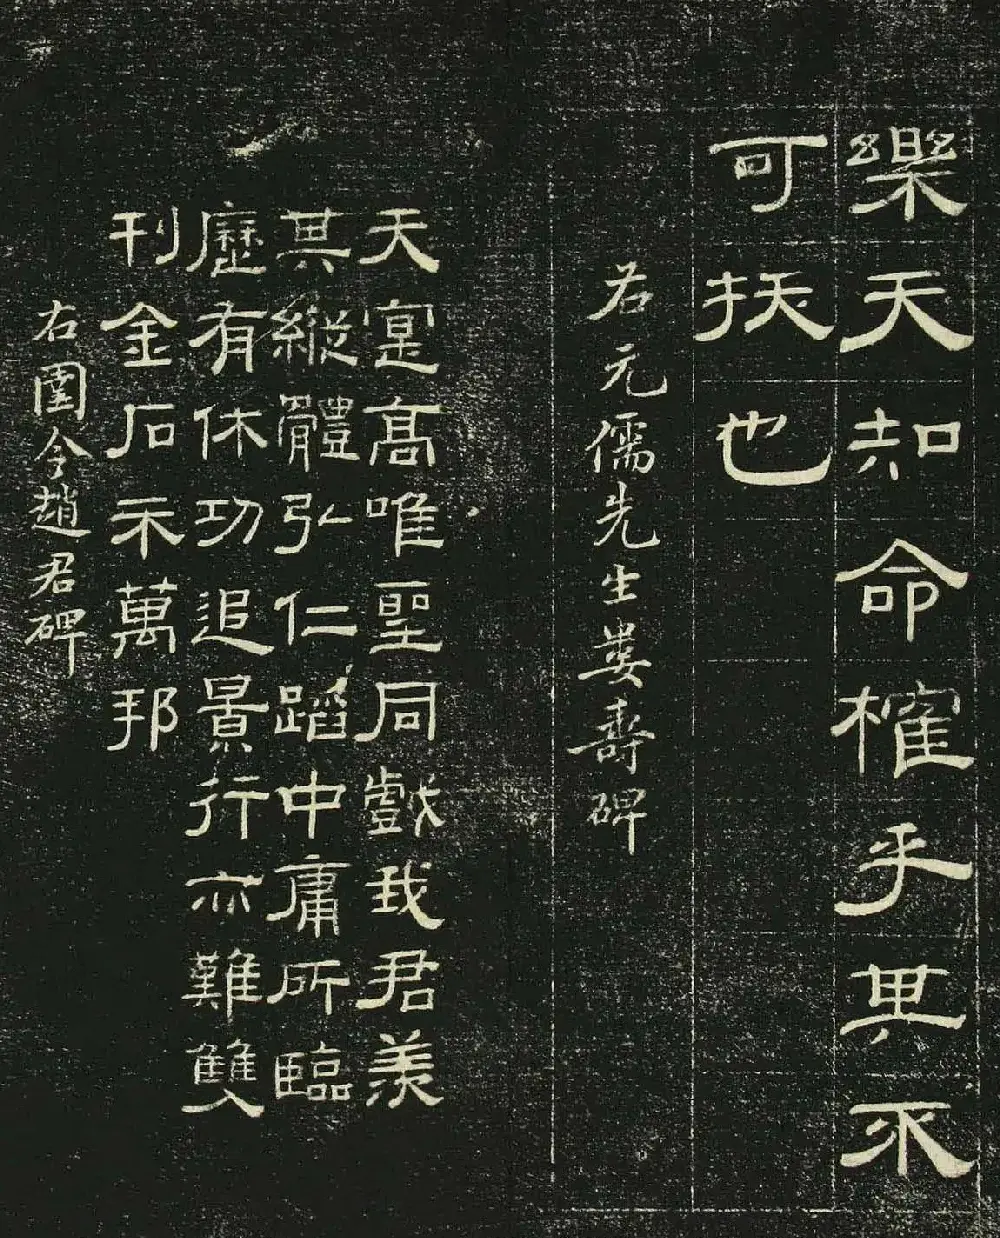 樂天知命榷乎其不
可拔也
右元儒先生婁壽碑
天寔高唯聖同戲我君羨
其縱體弘仁蹈中庸所臨
歷有休功追景行亦難雙
刊金石示萬邦
右圉令趙君碑